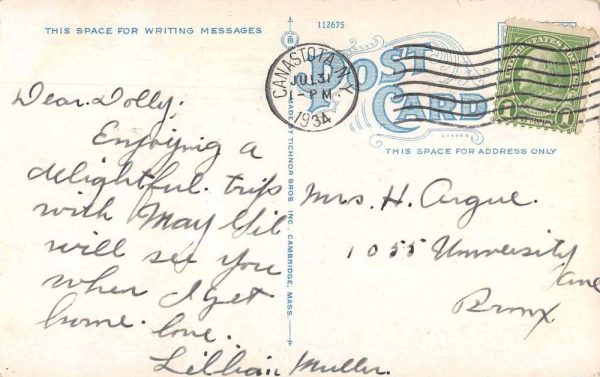 THIS SPACE FOR WRITING MESSAGES
112675
POST
CARD
THIS SPACE FOR ADDRESS ONLY
CANASTOTA, N.Y.
JUL 31
1-PM
1934
UNITED STATES
1
MADE BY TICHNOR BROS. INC., CAMBRIDGE, MASS.
Dear Dolly,
Enjoying a
delightful trip
with May Gil
will see you
when I get
home. love.
Lillian Muller.
Mrs. H. Argue.
1055 University
Ave
Bronx